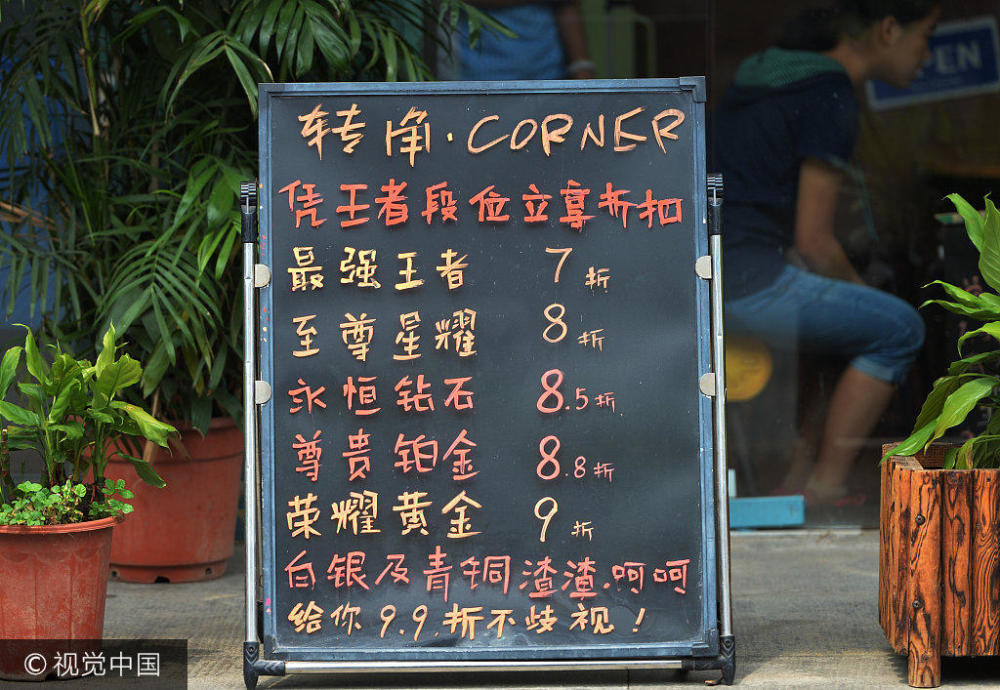 转角·CORNER
凭王者段位立享折扣
最强王者 7折
至尊星耀 8折
永恒钻石 8.5折
尊贵铂金 8.8折
荣耀黄金 9折
白银及青铜渣渣.呵呵
给你9.9.折不歧视！
OPEN
© 视觉中国